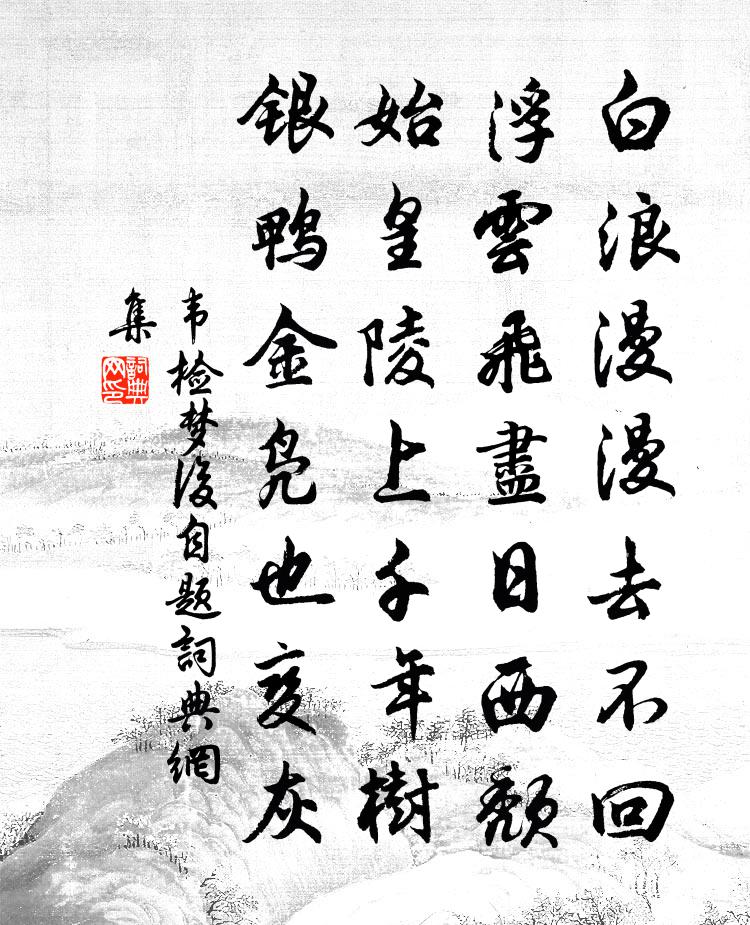 白浪漫漫去不回
浮雲飛盡日西頹
始皇陵上千年樹
銀鴨金凫也变灰
韦检梦後自题詞典網
集
詞典
网印